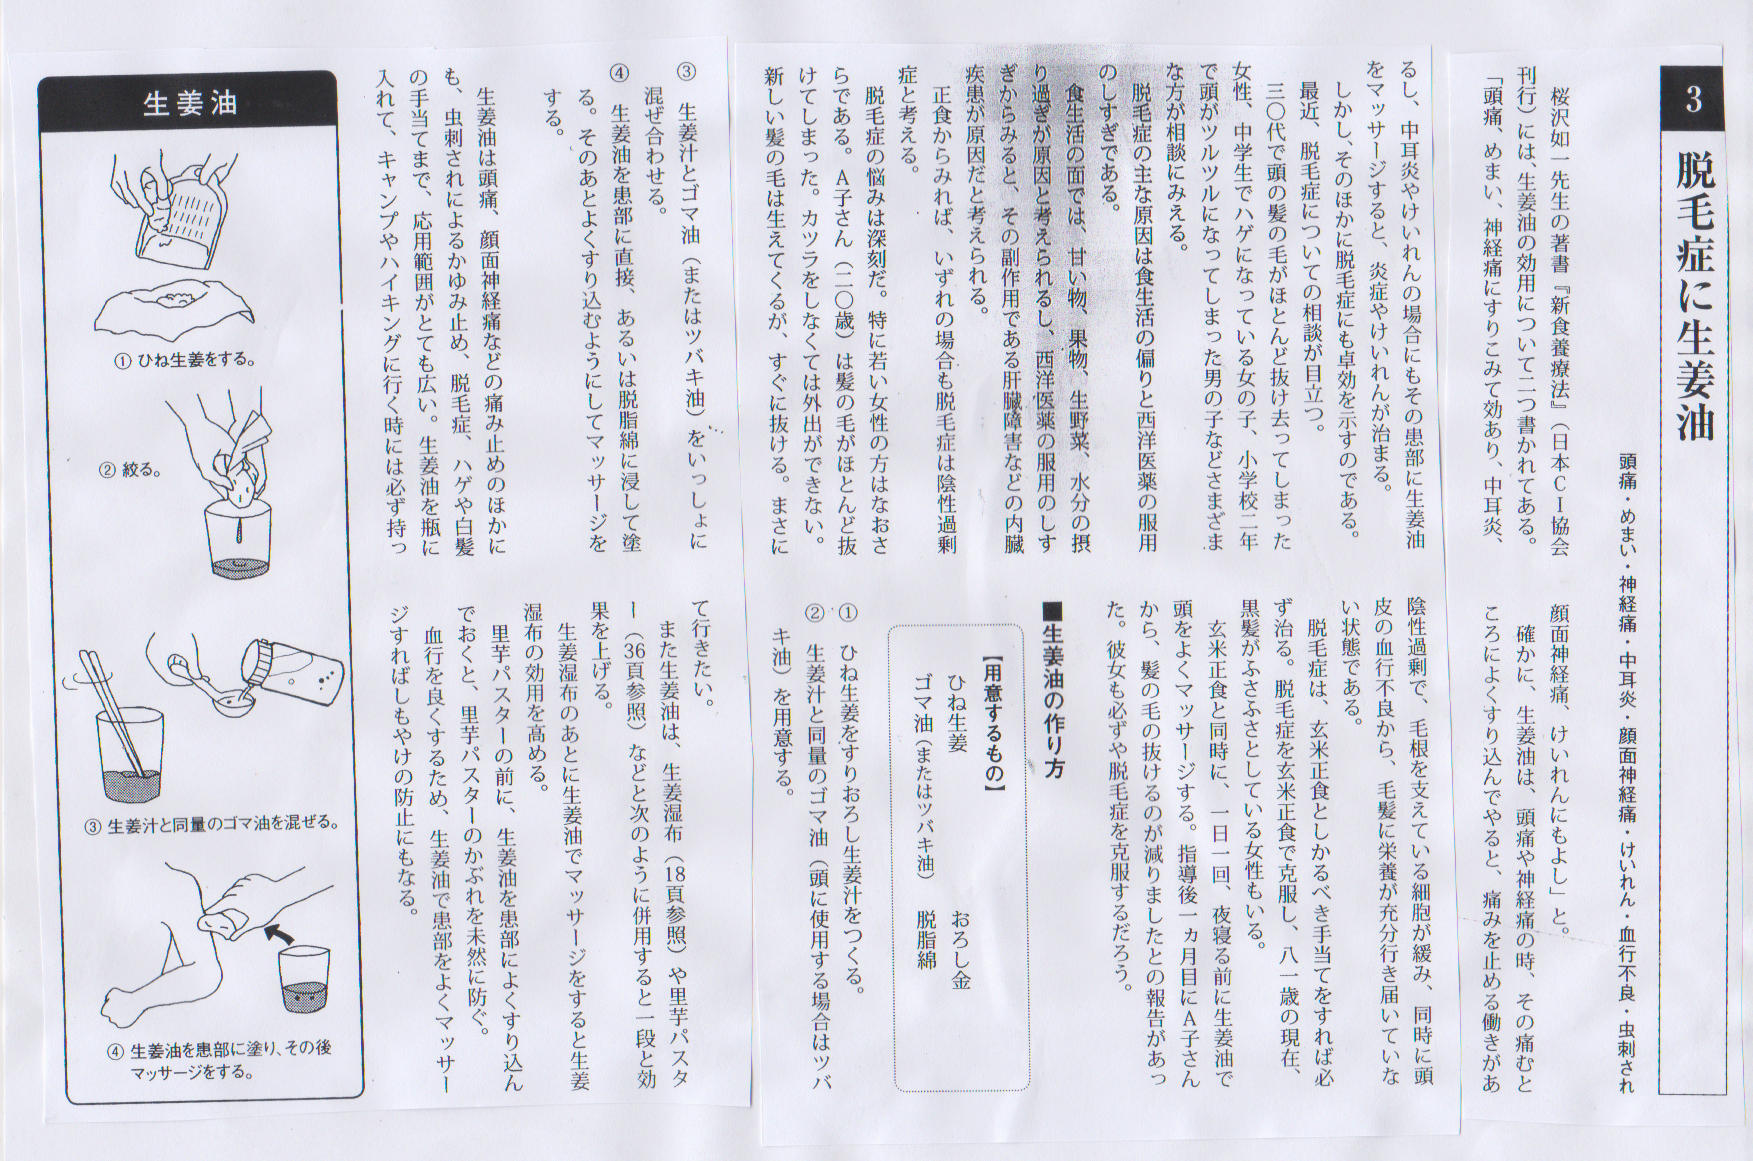 3 脱毛症に生姜油
頭痛・めまい・神経痛・中耳炎・顔面神経痛・けいれん・血行不良・虫刺され
桜沢如一先生の著書『新食養療法』(日本CI協会
刊行)には、生姜油の効用について二つ書かれてある。
「頭痛、めまい、神経痛にすりこみて効あり、中耳炎、
顔面神経痛、けいれんにもよし」と。
確かに、生姜油は、頭痛や神経痛の時、その痛むと
ころによくすり込んでやると、痛みを止める働きがあ
るし、中耳炎やけいれんの場合にもその患部に生姜油
をマッサージすると、炎症やけいれんが治まる。
しかし、そのほかに脱毛症にも卓効を示すのである。
最近、脱毛症についての相談が目立つ。
三〇代で頭の髪の毛がほとんど抜け去ってしまった
女性、中学生でハゲになっている女の子、小学校二年
で頭がツルツルになってしまった男の子などさまざま
な方が相談にみえる。
脱毛症の主な原因は食生活の偏りと西洋医薬の服用
のしすぎである。
食生活の面では、甘い物、果物、生野菜、水分の摂
り過ぎが原因と考えられるし、西洋医薬の服用のしす
ぎからみると、その副作用である肝臓障害などの内臓
疾患が原因だと考えられる。
正食からみれば、いずれの場合も脱毛症は陰性過剰
症と考える。
脱毛症の悩みは深刻だ。特に若い女性の方はなおさ
らである。A子さん(二〇歳)は髪の毛がほとんど抜
けてしまった。カツラをしなくては外出ができない。
新しい髪の毛は生えてくるが、すぐに抜ける。まさに
陰性過剰で、毛根を支えている細胞が緩み、同時に頭
皮の血行不良から、毛髪に栄養が充分行き届いていな
い状態である。
脱毛症は、玄米正食としかるべき手当てをすれば必
ず治る。脱毛症を玄米正食で克服し、八一歳の現在、
黒髪がふさふさとしている女性もいる。
玄米正食と同時に、一日一回、夜寝る前に生姜油で
頭をよくマッサージする。指導後一ヵ月目にA子さん
から、髪の毛の抜けるのが減りましたとの報告があっ
た。彼女も必ずや脱毛症を克服するだろう。
■生姜油の作り方
【用意するもの】
ひね生姜 おろし金
ゴマ油(またはツバキ油) 脱脂綿
① ひね生姜をすりおろし生姜汁をつくる。
② 生姜汁と同量のゴマ油(頭に使用する場合はツバ
キ油)を用意する。
③ 生姜汁とゴマ油(またはツバキ油)をいっしょに
混ぜ合わせる。
④ 生姜油を患部に直接、あるいは脱脂綿に浸して塗
る。そのあとよくすり込むようにしてマッサージを
する。
生姜油は頭痛、顔面神経痛などの痛み止めのほかに
も、虫刺されによるかゆみ止め、脱毛症、ハゲや白髪
の手当てまで、応用範囲がとても広い。生姜油を瓶に
入れて、キャンプやハイキングに行く時には必ず持っ
て行きたい。
また生姜油は、生姜湿布(18頁参照)や里芋パスタ
ー(36頁参照)などと次のように併用すると一段と効
果を上げる。
生姜湿布のあとに生姜油でマッサージをすると生姜
湿布の効用を高める。
里芋パスターの前に、生姜油を患部によくすり込ん
でおくと、里芋パスターのかぶれを未然に防ぐ。
血行を良くするため、生姜油で患部をよくマッサー
ジすればしもやけの防止にもなる。
生姜油
① ひね生姜をする。
② 絞る。
③ 生姜汁と同量のゴマ油を混ぜる。
④ 生姜油を患部に塗り、その後
マッサージをする。